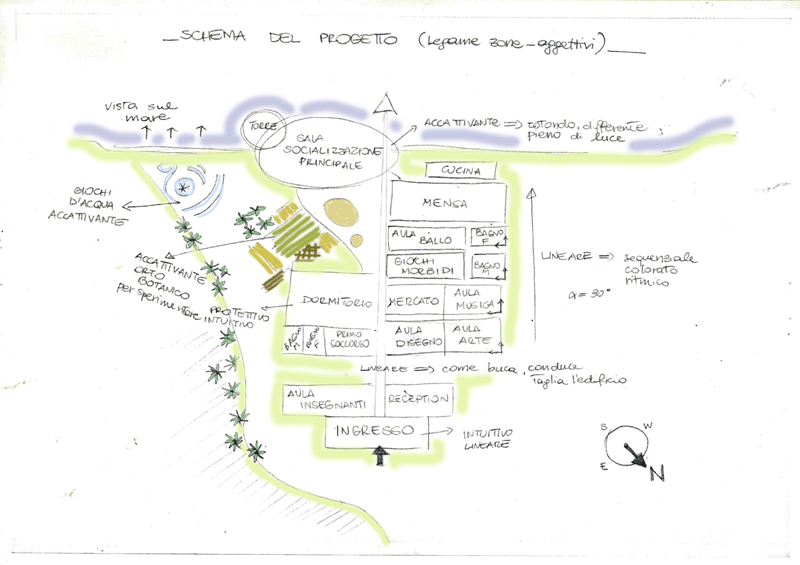 SCHEMA DEL PROGETTO (legame zone-aggettivi)
vista sul
mare
TORRE
SALA
SOCIALIZZAZIONE
PRINCIPALE
ACCATTIVANTE => rotondo, differente,
pieno di luce
CUCINA
MENSA
GIOCHI
D'ACQUA
ACCATTIVANTE
AULA
BALLO
BAGNO
F
GIOCHI
MORBIDI
BAGNO
M
LINEARE => sequenziale
colorato
ritmico
α = 90°
ACCATTIVANTE
ORTO
BOTANICO
per sperimentare
PROTETTIVO
INTUITIVO
DORMITORIO
MERCATO
AULA
MUSICA
BAGNO
M
BAGNO
F
PRIMO
SOCCORSO
AULA
DISEGNO
AULA
ARTE
LINEARE => come buca, conduce
taglia l'edificio
AULA
INSEGNANTI
RECEPTION
INGRESSO
INTUITIVO
LINEARE
S
W
E
N